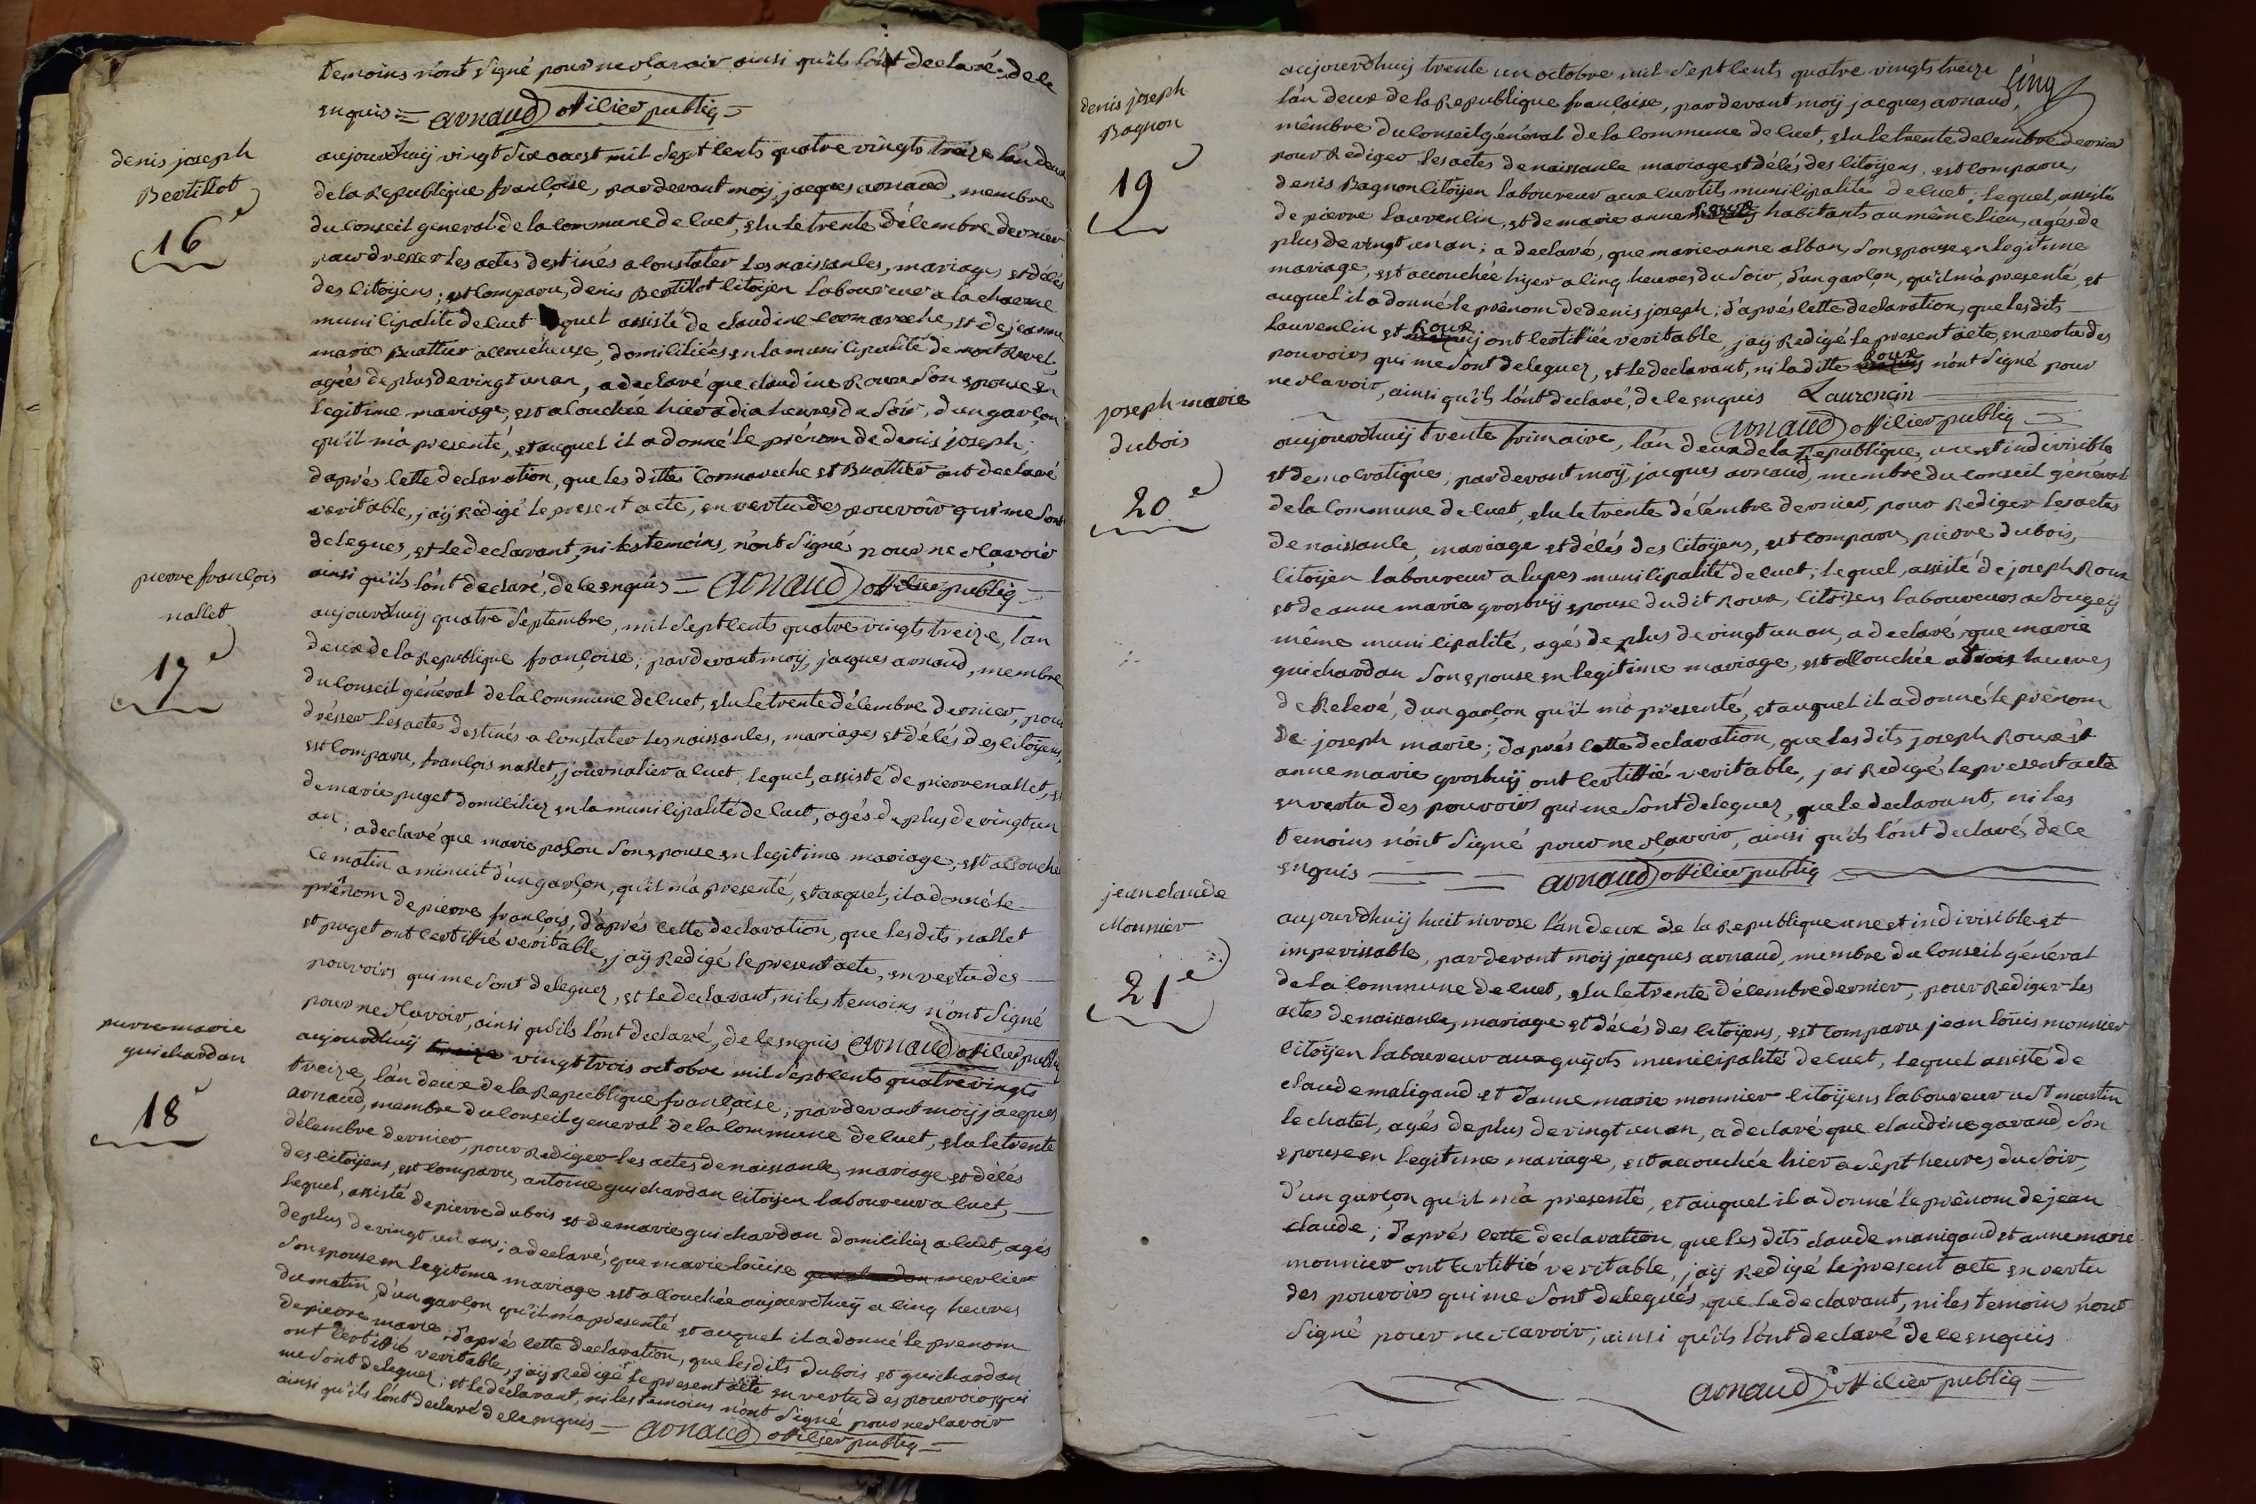 temoins n'ont signé pour ne sçavoir ainsi qu'ils l'ont declaré, de ce
enquis = arnaud officier publiq =
denis joseph
Bertillot
16e
aujourdhuij vingt six aoust mil sept cents quatre vingts treize l'an deux
de la Republique françoise, pardevant moij, jacques arnaud, membre
du conseil general de la commune de cuet, elu le trente décembre dernier
pour dresser les actes destinés a constater les naissances, mariages et décés
des citoÿens; est comparu, denis Bertillot citoÿen laboureur a la charme
municipalité de cuet lequel assisté de claudine cormareche, et de jeanne
marie Buattier accoucheuse, domiciliées en la municipalité de mont Revel,
agées de plus de vingt un an, a declaré que claudine Roux son epouse en
legitime mariage, est acouchée hier a dix heures du soir, d'un garçon
qu'il m'a presenté, et auquel il a donné le prénom de denis joseph;
d'aprés cette declaration, que les dittes cormareche et Buattier ont declaré
veritable, j'aÿ Redigé le present acte, en vertu des pouvoir qui me sont
delegues, et le declarant, ni les temoins, n'ont signés pour ne sçavoir
ainsi qu'ils l'ont declaré, de ce enquis = arnaud officier publiq =
pierre françois
nallet
17e
aujourdhuij quatre septembre, mil sept cents quatre vingts treize, l'an
deux de la Republique françoise; pardevant moij, jacques arnaud, membre
du conseil général de la commune de cuet, elu le trente décembre dernier, pour
drésser les acte destinés a constater les naissances, mariages et décés des citoÿens,
est comparu, françois nallet, journalier a cuet, lequel, assisté de pierre nallet, et
de marie puget domiciliez en la municipalité de cuet, agés de plus de vingt un
an; a declaré que marie son epouse en legitime mariage, est accouché
ce matin a minuit d'un garçon, qu'il m'a presenté, et auquel, il a donné le
prénom de pierre françois, d'aprés cette declaration, que les dits nallet
et puget ont certiffié veritable, j'aÿ Redigé le present acte, en vertu des
pouvoirs qui me sont deleguez, et le declarant, ni les temoins n'ont signé
pour ne sçavoir, ainsi qu'ils l'ont declaré, de ce enquis arnaud officier publiq
pierre marie
guichardan
18e
aujourdhuij treize vingt trois octobre mil sept cents quatre vingts
treize, l'an deux de la Republique françoise; pardevant moij jacques
arnaud, membre du conseil general de la commune de cuet, elu le trente
décembre dernier, pour rediger les actes de naissance, mariage et décés
des citoÿens, est comparu, antoine guichardan citoÿen laboureur a cuet,
lequel, assisté de pierre dubois et de marie guichardan domiciliez a cuet, agés
de plus de vingt un ans; a declaré, que marie loüise guichardan merlier
son epouse en legitime mariage est accouchée aujourdhuij a cinq heures
du matin, d'un garçon qu'il m'a présenté et auquel il a donné le prenom
de pierre marie; d'aprés cette declaration, que les dits dubois et guichardan
ont certiffié veritable, j'aÿ Redigé le present acte en vertu des pouvoirs qui
me sont deleguez; et le declarant, ni les temoins n'ont signé pour ne sçavoir
ainsi qu'ils l'ont declaré de ce enquis = arnaud officier publiq =
cinq
denis joseph
Bagnon
19e
aujourdhuij trente un octobre mil sept cents quatre vingts treize
l'an deux de la Republique françoise, pardevant moij jacques arnaud,
mêmbre du conseil général de la commune de cuet, elu le trente decembre dernier
pour Rediger les actes de naissance mariage et décés des citoÿens, est comparu,
denis Bagnon citoÿen laboureur aux curtils municipalité de cuet; lequel, assisté
de pierre laurencin, et de marie anne roux habitants au même lieu, agés de
plus de vingt un an; a declaré, que marie anne alban, son epouse en legitime
mariage, est accouchée hijer a cinq heures du soir, d'un garçon, qu'il m'a presenté, et
auquel il a donné le prénom de denis joseph; d'aprés cette declaration, que les dits
laurencin et Roux ont certiffiée veritable, j'aÿ Redigé le present acte, en vertu des
pouvoirs qui me sont deleguez, et le declarant, ni la ditte Roux n'ont signé pour
ne sçavoir, ainsi qu'ils l'ont declaré, de ce enquis Laurencin
arnaud officier publiq
joseph marie
dubois
20e
aujourdhuij trente frimaire, l'an deux de la Republique, une et indivisible
et democratique, pardevant moÿ, jacques arnaud, membre du conseil général
de la commune de cuet, elu le trente décémbre dernier, pour Rediger les actes
de naissance, mariage et décés des citoÿens, est comparu, pierre dubois,
citoÿen laboureur a lupes municipalité de cuet; lequel, assisté de joseph Roux
et de anne marie grosbuij epouse du dit Roux, citoÿens laboureurs a sougeÿ
même municipalité, agés de plus de vingt un an, a declaré, que marie
guichardan son epouse en legitime mariage, est accouchée a trois heures
de Relevé, d'un garçon qu'il m'a presenté, et auquel il a donné le prénom
de joseph marie; d'aprés cette declaration, que les dits joseph Roux et
anne marie grosbuij ont certiffié veritable, j'ai Redigé le present acte
en vertu des pouvoirs qui me sont deleguez, que le declarant, ni les
temoins n'ont signé pour ne sçavoir, ainsi qu'ils l'ont declarés de ce
enquis = arnaud officier publiq
jean claude
Monnier
21e
aujourdhuij huit nivose l'an deux de la Republique une et indivisible et
imperissable, pardevant moij jacques arnaud, membre du conseil général
de la commune de cuet, elu le trente décembre dernier, pour Rediger les
actes de naissance, mariage et décés des citoÿens, est comparu jean loüis monnier
citoÿen laboureur aux guÿots municipalité de cuet, lequel assisté de
claude maligand et d'anne marie monnier citoÿens laboureur a st martin
le chatel, agés de plus de vingt un an, a declaré que claudine gavand son
epouse en legitime mariage, est accouchée hier a sept heures du soir,
d'un garçon qu'il m'a presenté, et auquel il a donné le prénom de jean
claude; d'aprés cette declaration, que les dits claude manigand et anne marie
monnier ont certiffié veritable, j'aÿ Redigé le present acte en vertu
des pouvoirs qui me sont delegués, que le declarant, ni les temoins n'ont
signé pour ne sçavoir; ainsi qu'ils l'ont declaré de ce enquis
arnaud officier publiq =